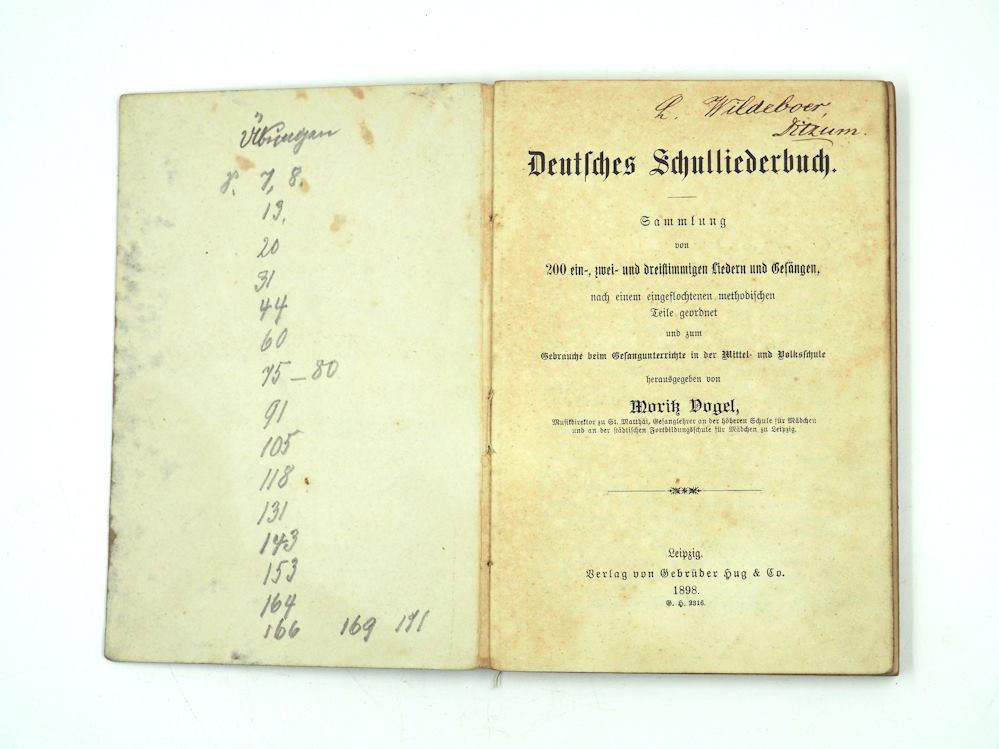 Übungen
S. 7, 8.
13,
20
31
44
60
75 – 80
91
105
118
131
143
153
164
166 169 171
L. Wildeboer,
Ditzum.
Deutſches Schulliederbuch.
Sammlung
von
200 ein-, zwei- und dreiſtimmigen Liedern und Geſängen,
nach einem eingeflochtenen methodiſchen
Teile geordnet
und zum
Gebrauche beim Geſangunterrichte in der Mittel- und Volksſchule
herausgegeben von
Moritz Vogel,
Muſikdirektor zu St. Matthäi, Geſanglehrer an der höheren Schule für Mädchen
und an der ſtädtiſchen Fortbildungsſchule für Mädchen zu Leipzig.
Leipzig.
Verlag von Gebrüder Hug & Co.
1898.
G. H. 2316.